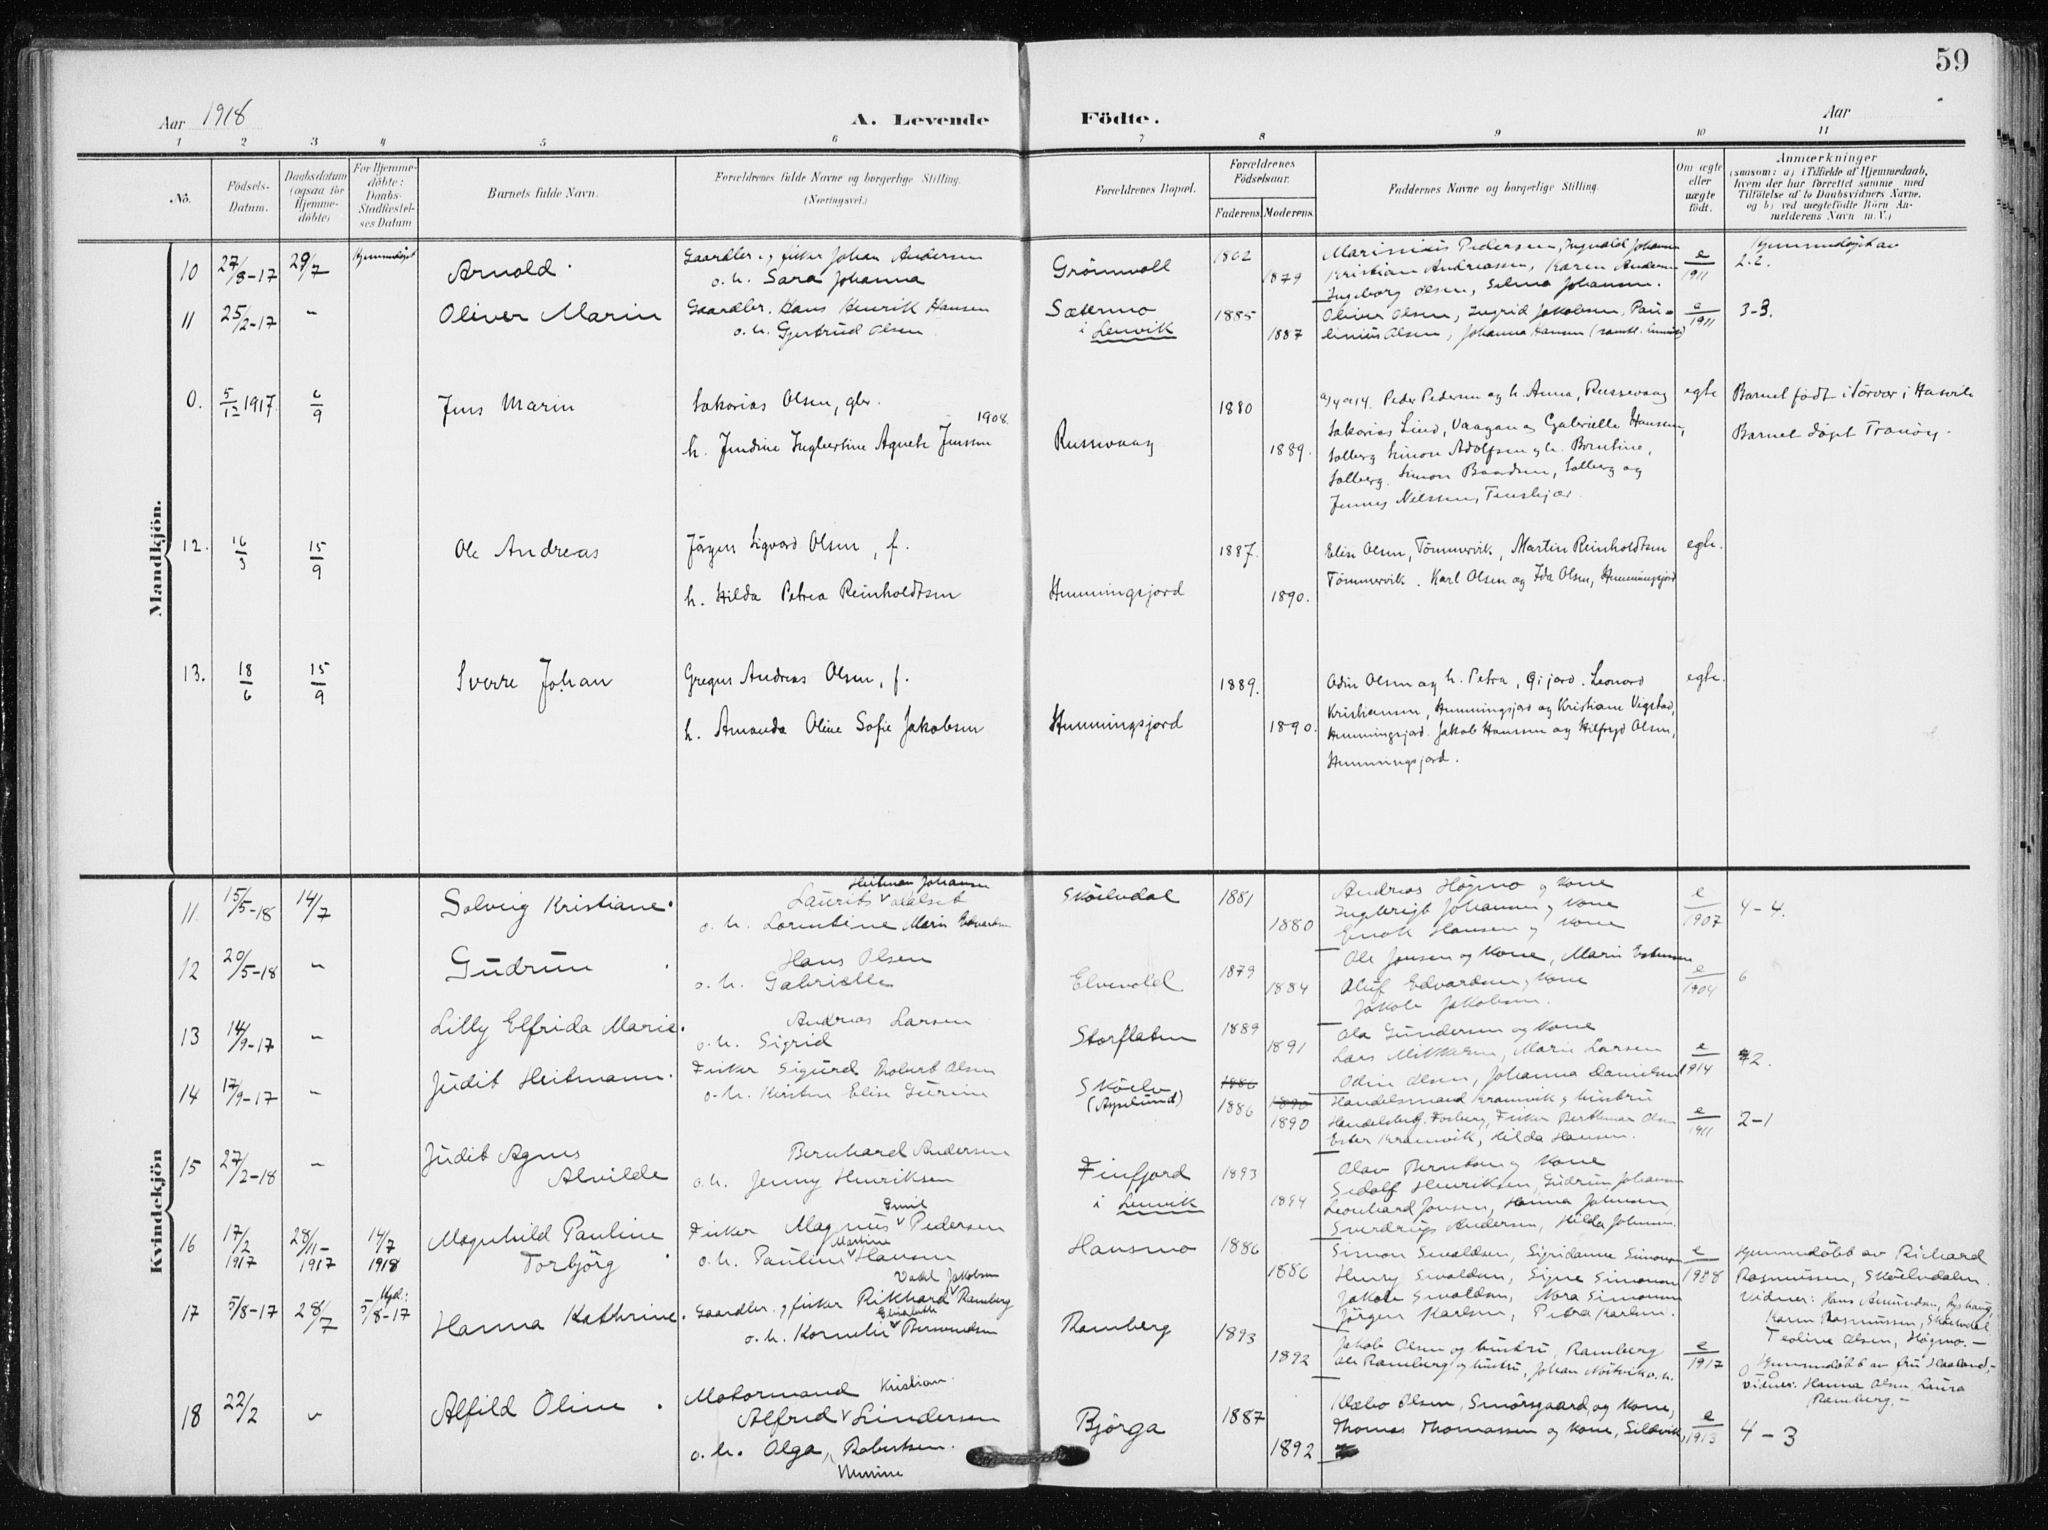 59
Aar 1918
A. Levende Födte.
Aar
1 2 3 4 5 6 7 8 9 10 11
No.
Födsels-
Datum.
Daabsdatum
(ogsaa for
Hjemme-
döbte)
For Hjemme-
döbte:
Daabs-
Stadfæstel-
ses Datum
Barnets fulde Navn.
Forældrenes fulde Navne og borgerlige Stilling.
(Næringsvei.)
Forældrenes Bopæl.
Forældrenes
Födselsaar.
Faderens. Moderens.
Faddernes Navne og borgerlige Stilling.
Om ægte
eller
uægte
födt.
Anmærkninger
(saasom: a) i Tilfælde af Hjemmedaab,
hvem der har forrettet samme med
Tilföielse af to Daabsvidners Navne,
og b) ved uægtefödte Börn An-
melderens Navn m. V.)
Mandkjön.
10 27/8-17 29/7 Hjemmedöpt Arnold.
Gaardbr. og fisker Johan Andersen
o. h. Sara Johanna
Grönnvoll 1862 1879
Marinius Pedersen, Ingvald Johansen
Kristian Andreassen, Karen Andersen
Ingeborg Olsen, Selma Johansen.
e/1911
Hjemmedöpt av
2-2.
11 25/2-17 " Oliver Marin
Gaardbr. Hans Henrik Hansen
o. h. Gjertrud Olsen
Sætermo
i Lenvik
1885 1887
Oliver Olsen, Ingrid Jakobsen, Pau-
linius Olsen, Johanna Hansen
e/1911 3-3.
0. 5/12 1917. 6/9 Jens Marin
Sakarias Olsen, gbr.
1908.
h. Jendine Ingbertine Agnete Jenssen
Russevaag 1880 1889.
Peder Pedersen og h. Anna, Russevaag
Sakarias Lind, Vaagan og Gabrielle Hanssen,
Solberg Simon Adolfsen og h. Berntine,
Solberg. Simon Baardsen, Solberg og
Jenny Nilssen, Tenskjær.
egte
Barnet födt i Sörvær i Hasvik
Barnet döpt Tranöy.
12. 16/3 15/9 Ole Andreas
Jörgen Sigvard Olsen, f.
h. Hilda Petrea Reinholdtsen
Hemmingsjord 1887. 1890.
Elise Olsen, Tömmervik, Martin Reinholdtsen
Tömmervik. Karl Olsen og Ida Olsen, Hemmingsjord
egte.
13. 18/6 15/9 Sverre Johan
Gregus Andreas Olsen, f.
h. Amanda Oline Sofie Jakobsen
Hemmingsjord 1889. 1890.
Odin Olsen og h. Petra, Gijord. Leonard
Kristiansen, Hemmingsjord og Kristiane Vigstad,
Hemmingsjord. Jakob Hanssen og Hilfryd Olsen,
Hemmingsjord.
egte.
Kvindekjön
11. 15/5-18 14/7 Solveig Kristiane.
Heitman Johansen
Laurits
o. h. Lorentine Marie Edvardsen
Skölvdal 1881 1880
Andreas Högmo og Kone
Ingbrigt Johansen og Kone
Enok Hansen og Kone
e/1907 4-4.
12 20/5-18 " Gudrun.
Hans Olsen
o. h. Gabrielle
Elvevold 1879 1884
Ole Jensen og Kone, Marie
Oluf Edvardsen, Kone
Jakob Jakobsen.
e/1904 6
13 14/9-17 " Lilly Elfrida Marie.
Andreas Larsen
o. h. Sigrid
Storflaten 1889 1891
Ola Gundersen og Kone
Lars Mikkelsen, Marie Larsen
Odin Olsen, Johanna Danielsen
e/1914 2.
14 17/9-17 " Judit Heitmann.
Fisker Sigurd Olsen
o. h. Kirsten Elise Gurine
Skölv
1886 1886 1890 1890
Handelsmand Kramvik og hustru
Handelsbetj. Forberg, Fisker Berthinus Olsen
Ester Kramvik, Hilda Hansen.
e/1911 2-1
15 27/2-18 " Judit Agnes
Alvilde
Bernhard Andersen
o. h. Jenny Henriksen
Finfjord
i Lenvik
1893 1894
Olav Berntsen og Kone
Sedolf Henriksen, Gudrun Johansen
Leonhard Jensen, Hanna Johnsen,
Sverdrup Andersen, Hilda Johnsen.
16 17/2 1917 28/11-1917 14/7 1918 Magnhild Pauline
Torbjörg
Emil
Fisker Magnus Pedersen
Martine
o. h. Pauline Hansen
Hansmo 1886 1886
Simon Sivaldsen, Sigridanne Simonsen
Henry Sivaldsen, Signe Simonsen
Jakob Sivaldsen, Nora Simonsen
Jörgen Karlsen, Petra Karlsen.
e/1908
Hjemmedöbt av Richard
Rasmussen, Skölvdalen.
Vidner: Hans Amundsen,
Karen Rasmussen, Skölvdal
Teoline Olsen, Högmo.-
17 5/8-17 28/7 Kjd: 5/8-17 Hanna Kathrine.
Jakobsen
Gaardbr. og fisker Rikhard Ramberg
Elisabeth
o. h. Kornelie Berntsen
Ramberg 1893 1892
Jakob Olsen og hustru, Ramberg
Ole Ramberg og hustru, Johan
e/1917
Hjemmedöbt av fru Haaland,-
Vidner: Hanna Olsen, Laura
Ramberg.-
18 22/2 " Alfild Oline.
Motormand Kristian
Alfred Lindersen
o. h. Olga, Robertsen.
Nunine
Björga 1887 1892
Klæbo Olsen, Smörsgaard, og Kone,
Thomas Thomassen og Kone,
e/1913 4-3